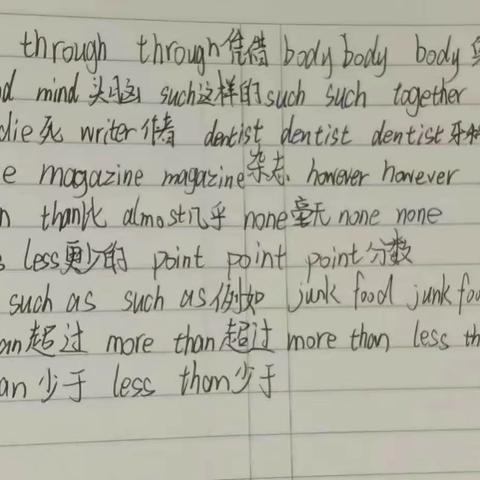 through through凭借 body body body
mind 头脑 such这样的 such such together
die死 writer作者 dentist dentist dentist
magazine magazine杂志 however however
than比 almost几乎 none毫无 none none
less更少的 point point point分数
such as such as例如 junk food junk
超过 more than超过 more than less
少于 less than少于